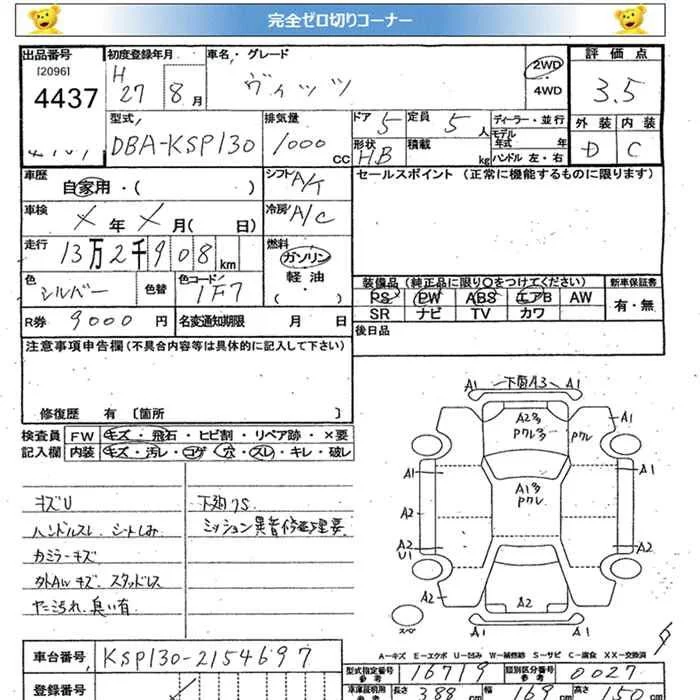 完全ゼロ切りコーナー
出品番号 初度登録年月 車名・グレード 評価点
[2096] H ヴィッツ 2WD
4437 27 8月 ・4WD 3.5
型式 排気量 ドア 定員 ディーラー・並行 外装 内装
DBA-KSP130 1000CC 5 5人 モデル年式 年 D C
形状 積載 kg ハンドル 左・右
H.B
車歴 自家用・( ) シフト A/T セールスポイント (正常に機能するものに限ります)
車検 ×年×月( 日) 冷房 A/C
走行 13万2千908km 燃料 ガソリン
軽油
( ・ )
色 シルバー 色替 色コード 1F7 装備品 (純正品に限り〇をつけてください) 新車保証書
PS PW ABS エアB AW 有・無
R券 9000円 名変通知期限 月 日 SR ナビ TV カワ
注意事項申告欄 (不具合内容等は具体的に記入して下さい) 後日品
修復歴 有 [箇所 ]
検査員 FW キズ・飛石・ヒビ割・リペア跡・×要
記入欄 内装 キズ・汚レ・コゲ・穴・スレ・キレ・破レ
キズU
ハンドルスレ シートしみ
カミラーキズ
外AWキズ スタッドレス
ヤニ汚れ、臭い有
下廻りS
ミッション異音修理要
A1 下面A3 A1
A2多 Pクレ多 Pクレ A1
A1 A1多 Pクレ A1
A2
A2 U1 A2
A2 A2
スペア A1 A1
A-キズ E-エクボ U-凹み W-補修跡 S-サビ C-腐食 XX-交換済
車台番号 KSP130-2154697
型式指定番号 参考 16719 類別区分番号 参考 0027
登録番号
車庫証明用 参考 長さ 388cm 幅 169cm 高さ 150cm